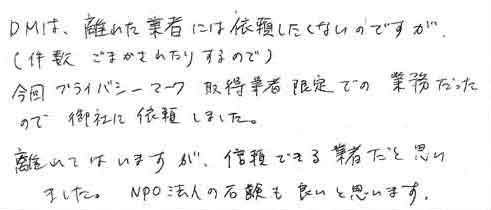 DMは、離れた業者には依頼したくないのですが、
(件数 ごまかされたりするので)
今回 プライバシーマーク 取得業者 限定での 業務だった
ので 御社に 依頼しました。
離れてはいますが、信頼できる 業者だと思い
ました。 NPO法人の石鹸も 良いと思います。